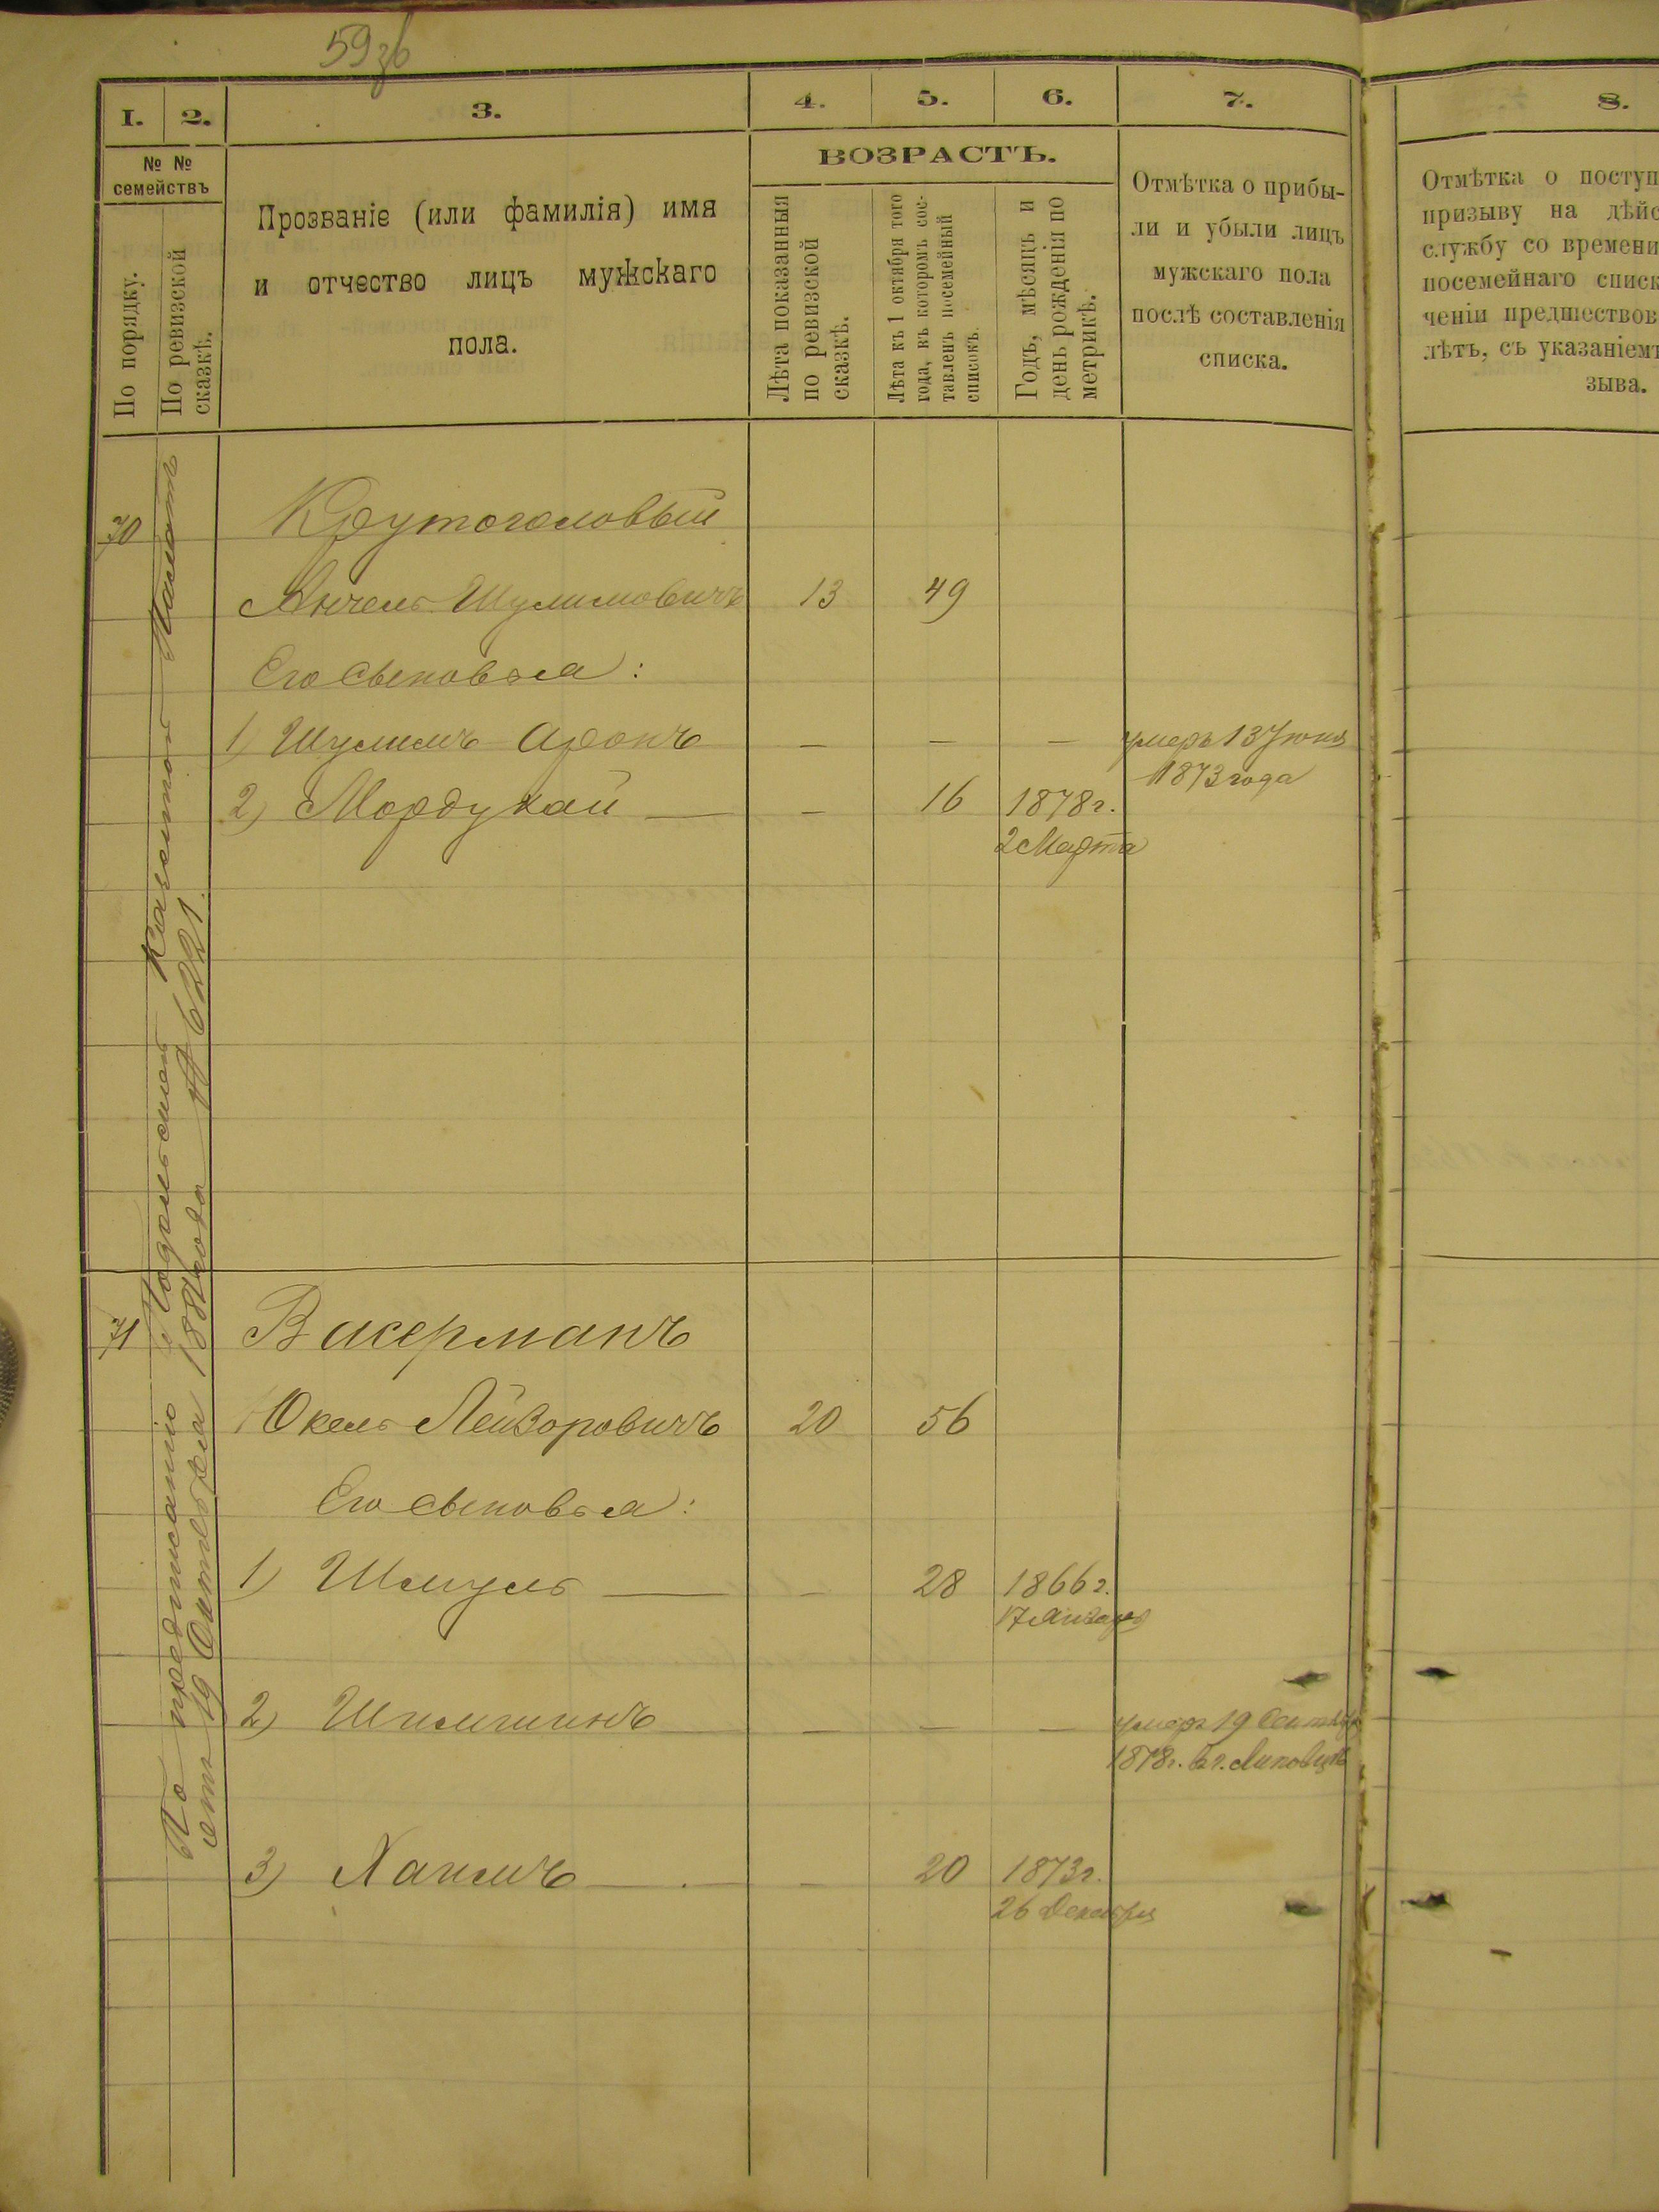 59 зв
1.
2.
3.
4.
5.
6.
7.
8.
№ №
семействъ
По порядку.
По ревизской
сказкѣ.
Прозваніе (или фамилія) имя
и отчество лицъ мужскаго
пола.
ВОЗРАСТЪ.
Лѣта показанныя
по ревизской
сказкѣ.
Лѣта къ 1 октября того
года, въ которомъ сос-
тавленъ посемейный
списокъ.
Годъ, мѣсяцъ и
день рожденія по
метрикѣ.
Отмѣтка о прибы-
ли и убыли лицъ
мужскаго пола
послѣ составленія
списка.
Отмѣтка о поступ
призыву на дѣйс
службу со времени
посемейнаго списк
ченіи предшествов
лѣтъ, съ указаніемъ
зыва.
По предписанію Подольской Казенной Палаты
отъ 19 Октября 1881 года № 6221.
70
Крутоголовый
Анчель Шулимовичъ 13 49
Его сыновья:
1) Шулимъ Аронъ — — — умеръ 13 Іюня
1873 года
2) Мордухай — — 16 1878 г.
2 Марта
71
Вакерманъ
Юкель Лейзоровичъ 20 56
Его сыновья:
1) Шмуль — — 28 1866 г.
17 Января
2) Шимшинъ — — — умеръ 19 Сентября
1878 г. въ г. Липовцѣ
3) Хаимъ — — 20 1873 г.
26 Декабря